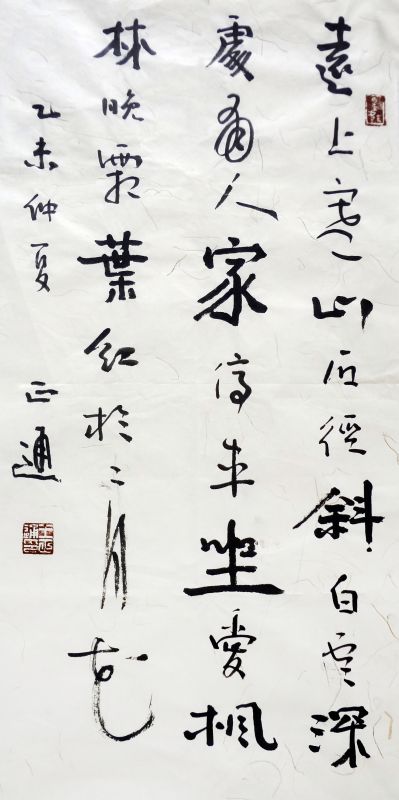 遠上寒山石徑斜白雲深
處有人家停車坐愛楓
林晚霜葉紅於二月花
乙未仲夏 正通